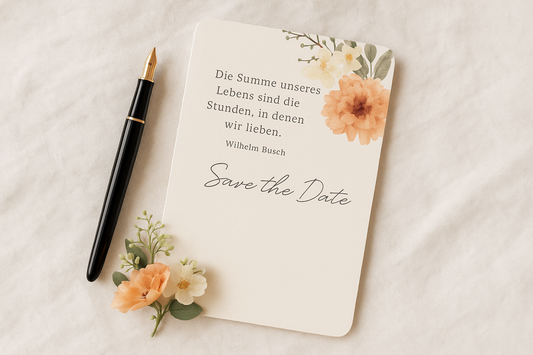 Die Summe unseres
Lebens sind die
Stunden, in denen
wir lieben.
Wilhelm Busch
Save the Date